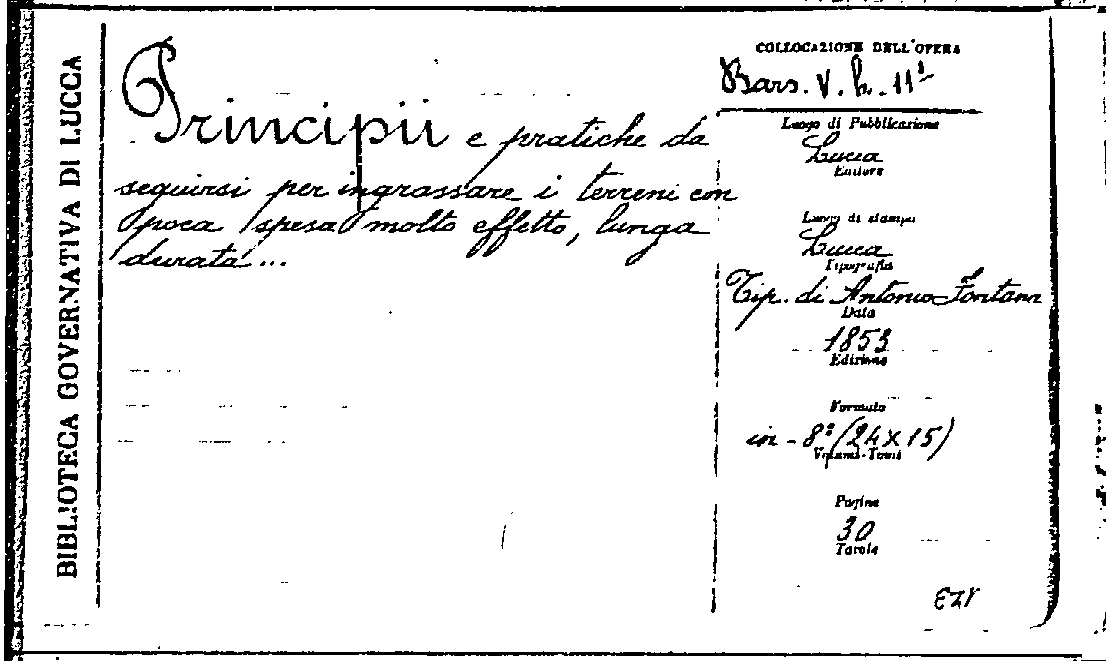 BIBLIOTECA GOVERNATIVA DI LUCCA
Principii e pratiche da
seguirsi per ingrassare i terreni con
poca spesa molto effetto, lunga
durata...
COLLOCAZIONE DELL'OPERA
Bars. V. h. 11¹
Luogo di Pubblicazione
Lucca
Editore
Luogo di stampa
Lucca
Tipografia
Tip. di Antonio Fontana
Data
1853
Edizione
Formato
in-8º (24x15)
Volumi-Tomi
Pagine
30
Tavole